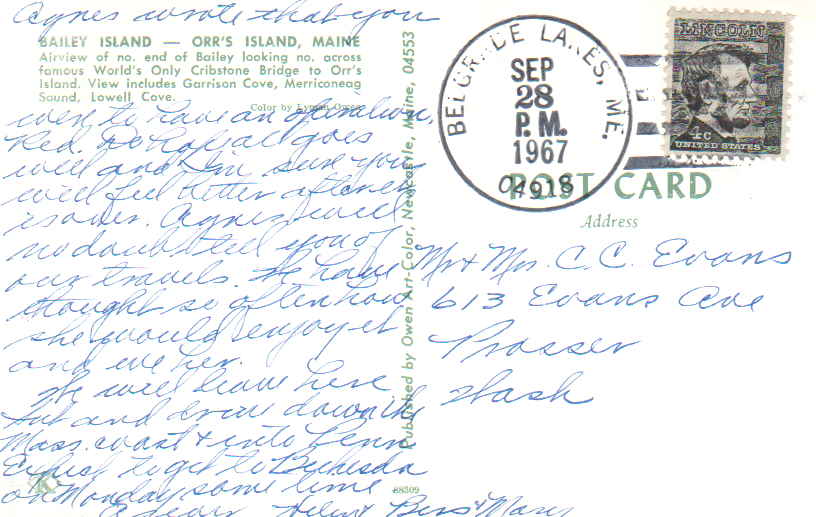 Agnes wrote that you
BAILEY ISLAND — ORR'S ISLAND, MAINE
Airview of no. end of Bailey looking no. across
famous World's Only Cribstone Bridge to Orr's
Island. View includes Garrison Cove, Merriconeag
Sound, Lowell Cove.
Color by Lyman Owen
were to have an operation,
Red. Do hope all goes
well and I'm sure you
will feel better after it
is over. Agnes will
no doubt tell you of
our travels. We have
thought so often how
she would enjoy it
and we her.
We will leave here
and drive down the
Mass. coast & into Penn
Expect to get to Bethesda
on Monday some time
Helen Bess & Mary
88309
Published by Owen Art-Color, Newcastle, Maine, 04553
BELGRADE LAKES, ME.
SEP
28
P.M.
1967
04918
LINCOLN
4c
UNITED STATES
POST CARD
Address
Mr & Mrs. C. C. Evans
613 Evans Ave
Prosser
Wash
K